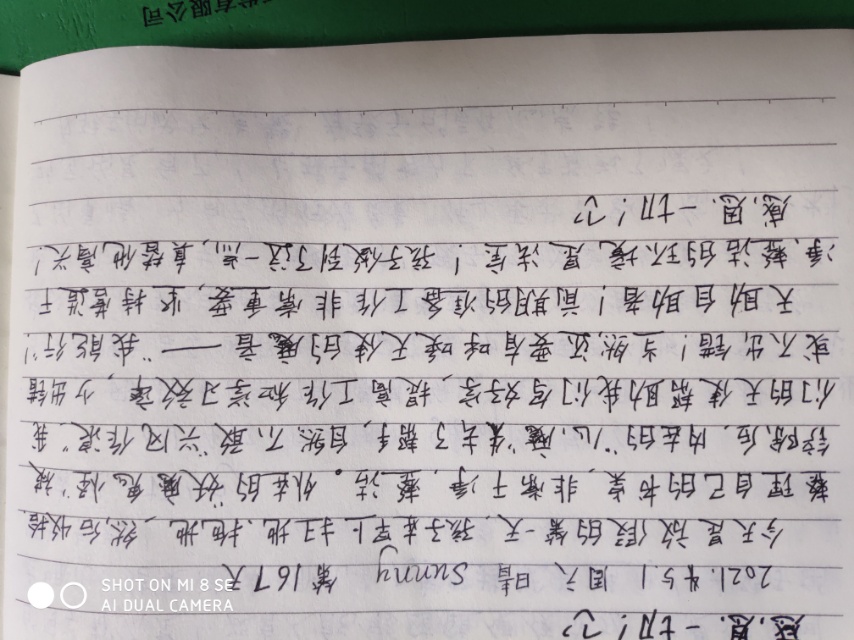 感恩一切!
2021.年5.1 周六 晴 Sunny 第167天
今天是放假的第一天,孩子来早上扫地、拖地、然后收拾
整理自己的书桌,非常干净、整洁。外在的"妖魔鬼怪"被
铲除后,内在的"心魔"失去了帮手,自然不敢"兴风作浪",我
们的天使帮助我们写好字,提高工作和学习效率,少出错
或不出错!当然还要有呼唤天使的魔音——"我能行"!
天助自助者!前期的准备工作非常重要,坚持营造干
净、整洁的环境是法宝!孩子做到了这一点,真替他高兴!
感恩一切!
发有限公司
SHOT ON MI 8 SE
AI DUAL CAMERA